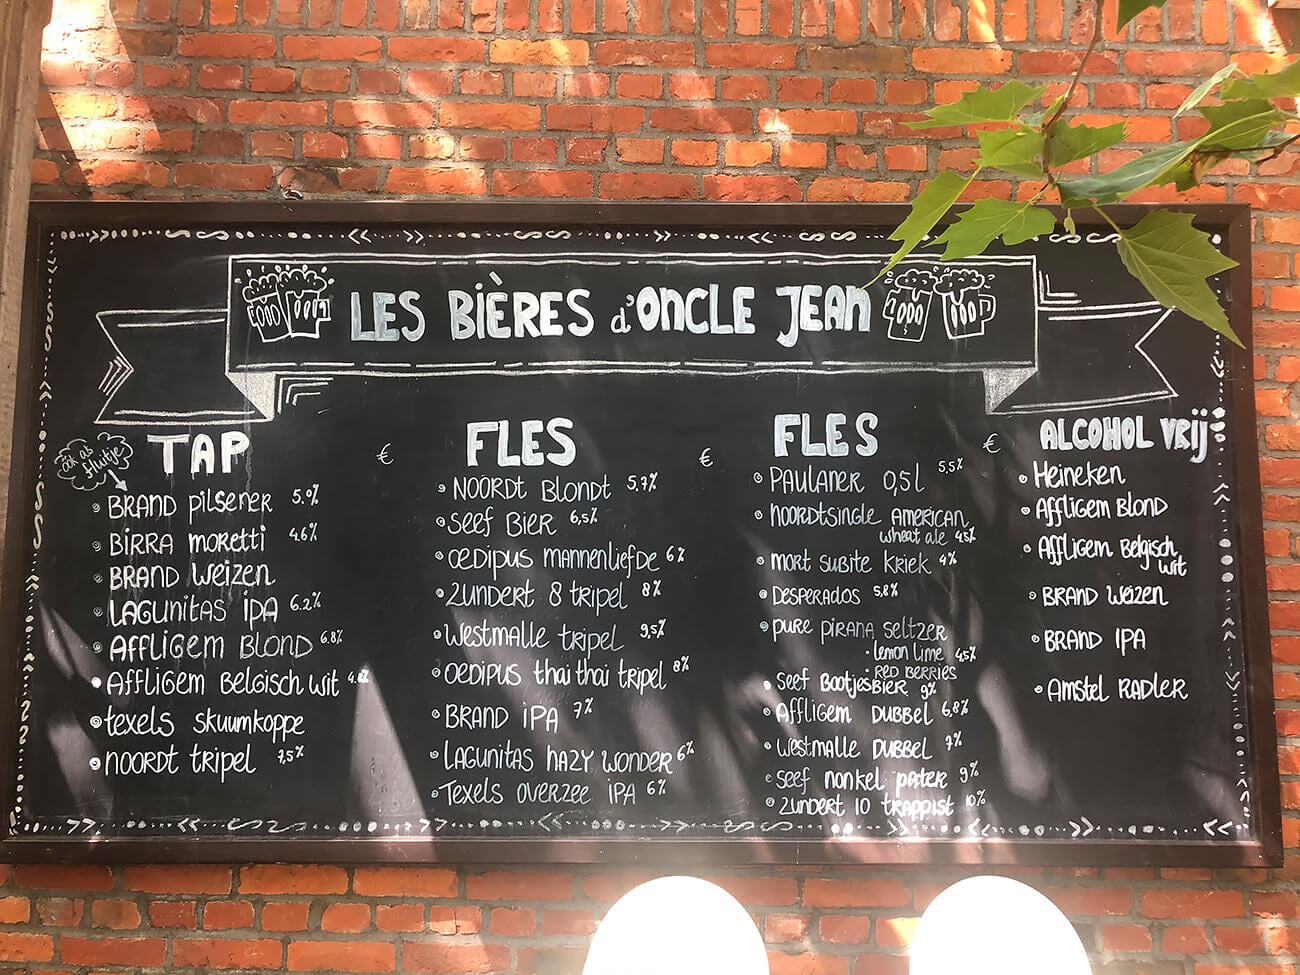 LES BIÈRES d'ONCLE JEAN
TAP
€
ook als
fluitje
BRAND PILSENER 5.0%
BIRRA MORETTI 4.6%
BRAND WEIZEN
LAGUNITAS IPA 6.2%
AFFLIGEM BLOND 6.8%
AFFLIGEM BELGISCH WIT
TEXELS SKUUMKOPPE
NOORDT TRIPEL 7,5%
FLES
€
NOORDT BLONDT 5,7%
SEEF BIER 6,5%
OEDIPUS MANNENLIEFDE 6%
ZUNDERT 8 TRIPEL 8%
WESTMALLE TRIPEL 9,5%
OEDIPUS THAI THAI TRIPEL 8%
BRAND IPA 7%
LAGUNITAS HAZY WONDER 6%
TEXELS OVERZEE IPA 6%
FLES
€
PAULANER 0,5L 5,5%
NOORDTSINGLE AMERICAN
WHEAT ALE 4,5%
MORT SUBITE KRIEK 4%
DESPERADOS 5,8%
PURE PIRANA SELTZER
· LEMON LIME 4,5%
· RED BERRIES
SEEF BOOTJESBIER 9%
AFFLIGEM DUBBEL 6,8%
WESTMALLE DUBBEL 7%
SEEF NONKEL PATER 9%
ZUNDERT 10 TRAPPIST 10%
ALCOHOL VRIJ
HEINEKEN
AFFLIGEM BLOND
AFFLIGEM BELGISCH
WIT
BRAND WEIZEN
BRAND IPA
AMSTEL RADLER